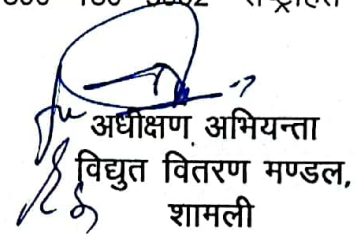 राष्ट्रहित
अधीक्षण अभियन्ता
विद्युत वितरण मण्डल,
शामली